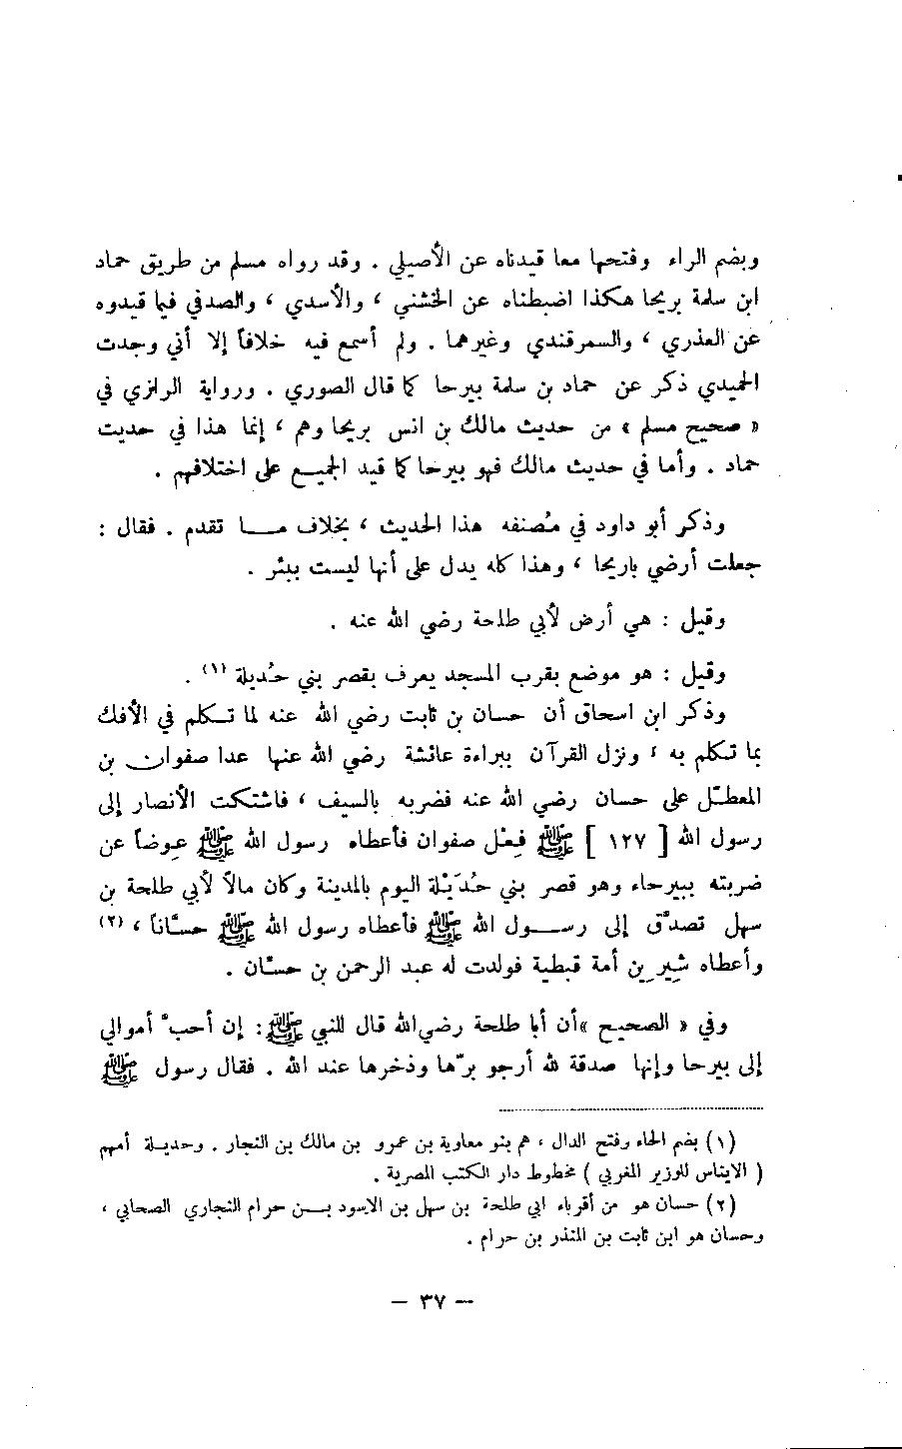 وبضم الراء وفتحها معا قيدناه عن الأصيلي . وقد رواه مسلم من طريق حماد
ابن سلمة بريحا هكذا اضبطناه عن الخشني ، والأسدي ، والصدفي فيما قيدوه
عن العذري ، والسمرقندي وغيرهما . ولم أسمع فيه خلافاً إلا أني وجدت
الحميدي ذكر عن حماد بن سلمة بيرحا كما قال الصوري . ورواية الرازي في
« صحيح مسلم » من حديث مالك بن انس بريحا وهم ، إنما هذا في حديث
حماد . وأما في حديث مالك فهو بيرحا كما قيد الجميع على اختلافهم .
وذكر أبو داود في مُصنفه هذا الحديث ، بخلاف ما تقدم . فقال :
جعلت أرضي باريحا ، وهذا كله يدل على أنها ليست ببئر .
وقيل : هي أرض لأبي طلحة رضي الله عنه .
وقيل : هو موضع بقرب المسجد يعرف بقصر بني حُديلة (١) .
وذكر ابن اسحاق أن حسان بن ثابت رضي الله عنه لما تكلم في الأفك
بما تكلم به ، ونزل القرآن ببراءة عائشة رضي الله عنها عدا صفوان بن
المعطّل على حسان رضي الله عنه فضربه بالسيف ، فاشتكت الأنصار إلى
رسول الله [ ١٢٧ ] ﷺ فِعْل صفوان فأعطاه رسول الله ﷺ عِوضاً عن
ضربته ببيرحاء وهو قصر بني حُدَيْلة اليوم بالمدينة وكان مالاً لأبي طلحة بن
سهل تصدَّق إلى رسول الله ﷺ فأعطاه رسول الله ﷺ حسَّاناً ، (٢)
وأعطاه شِيرِين أمة قبطية فولدت له عبد الرحمن بن حسّان .
وفي « الصحيح »أن أبا طلحة رضي الله قال للنبي ﷺ : إن أحبَّ أموالي
إلى بيرحا وإنها صدقة لله أرجو برّها وذخرها عند الله . فقال رسول ﷺ
(١) بضم الحاء وفتح الدال ، هم بنو معاوية بن عمرو بن مالك بن النجار . وحديلة أمهم
( الايناس للوزير المغربي ) مخطوط دار الكتب المصرية .
(٢) حسان هو من أقرباء ابي طلحة بن سهل بن الاسود بن حرام النجاري الصحابي ،
وحسان هو ابن ثابت بن المنذر بن حرام .
— ٣٧ —